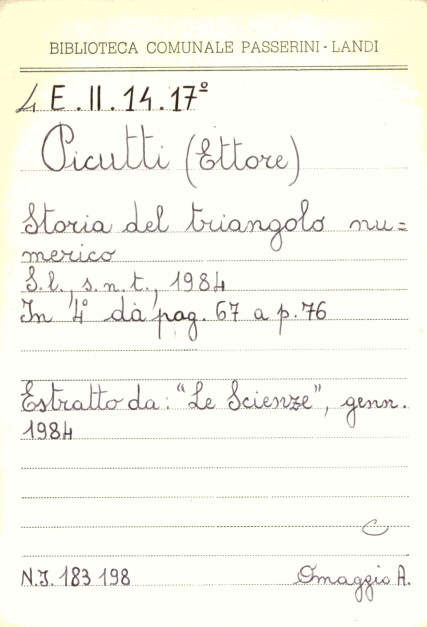 BIBLIOTECA COMUNALE PASSERINI-LANDI
4 E. II. 14. 17º
Picutti (Ettore)
Storia del triangolo nu=
merico
S. l., s. n. t., 1984
In 4º da pag. 67 a p. 76
Estratto da: "Le Scienze", genn.
1984
C
N.I. 183 198 Omaggio A.